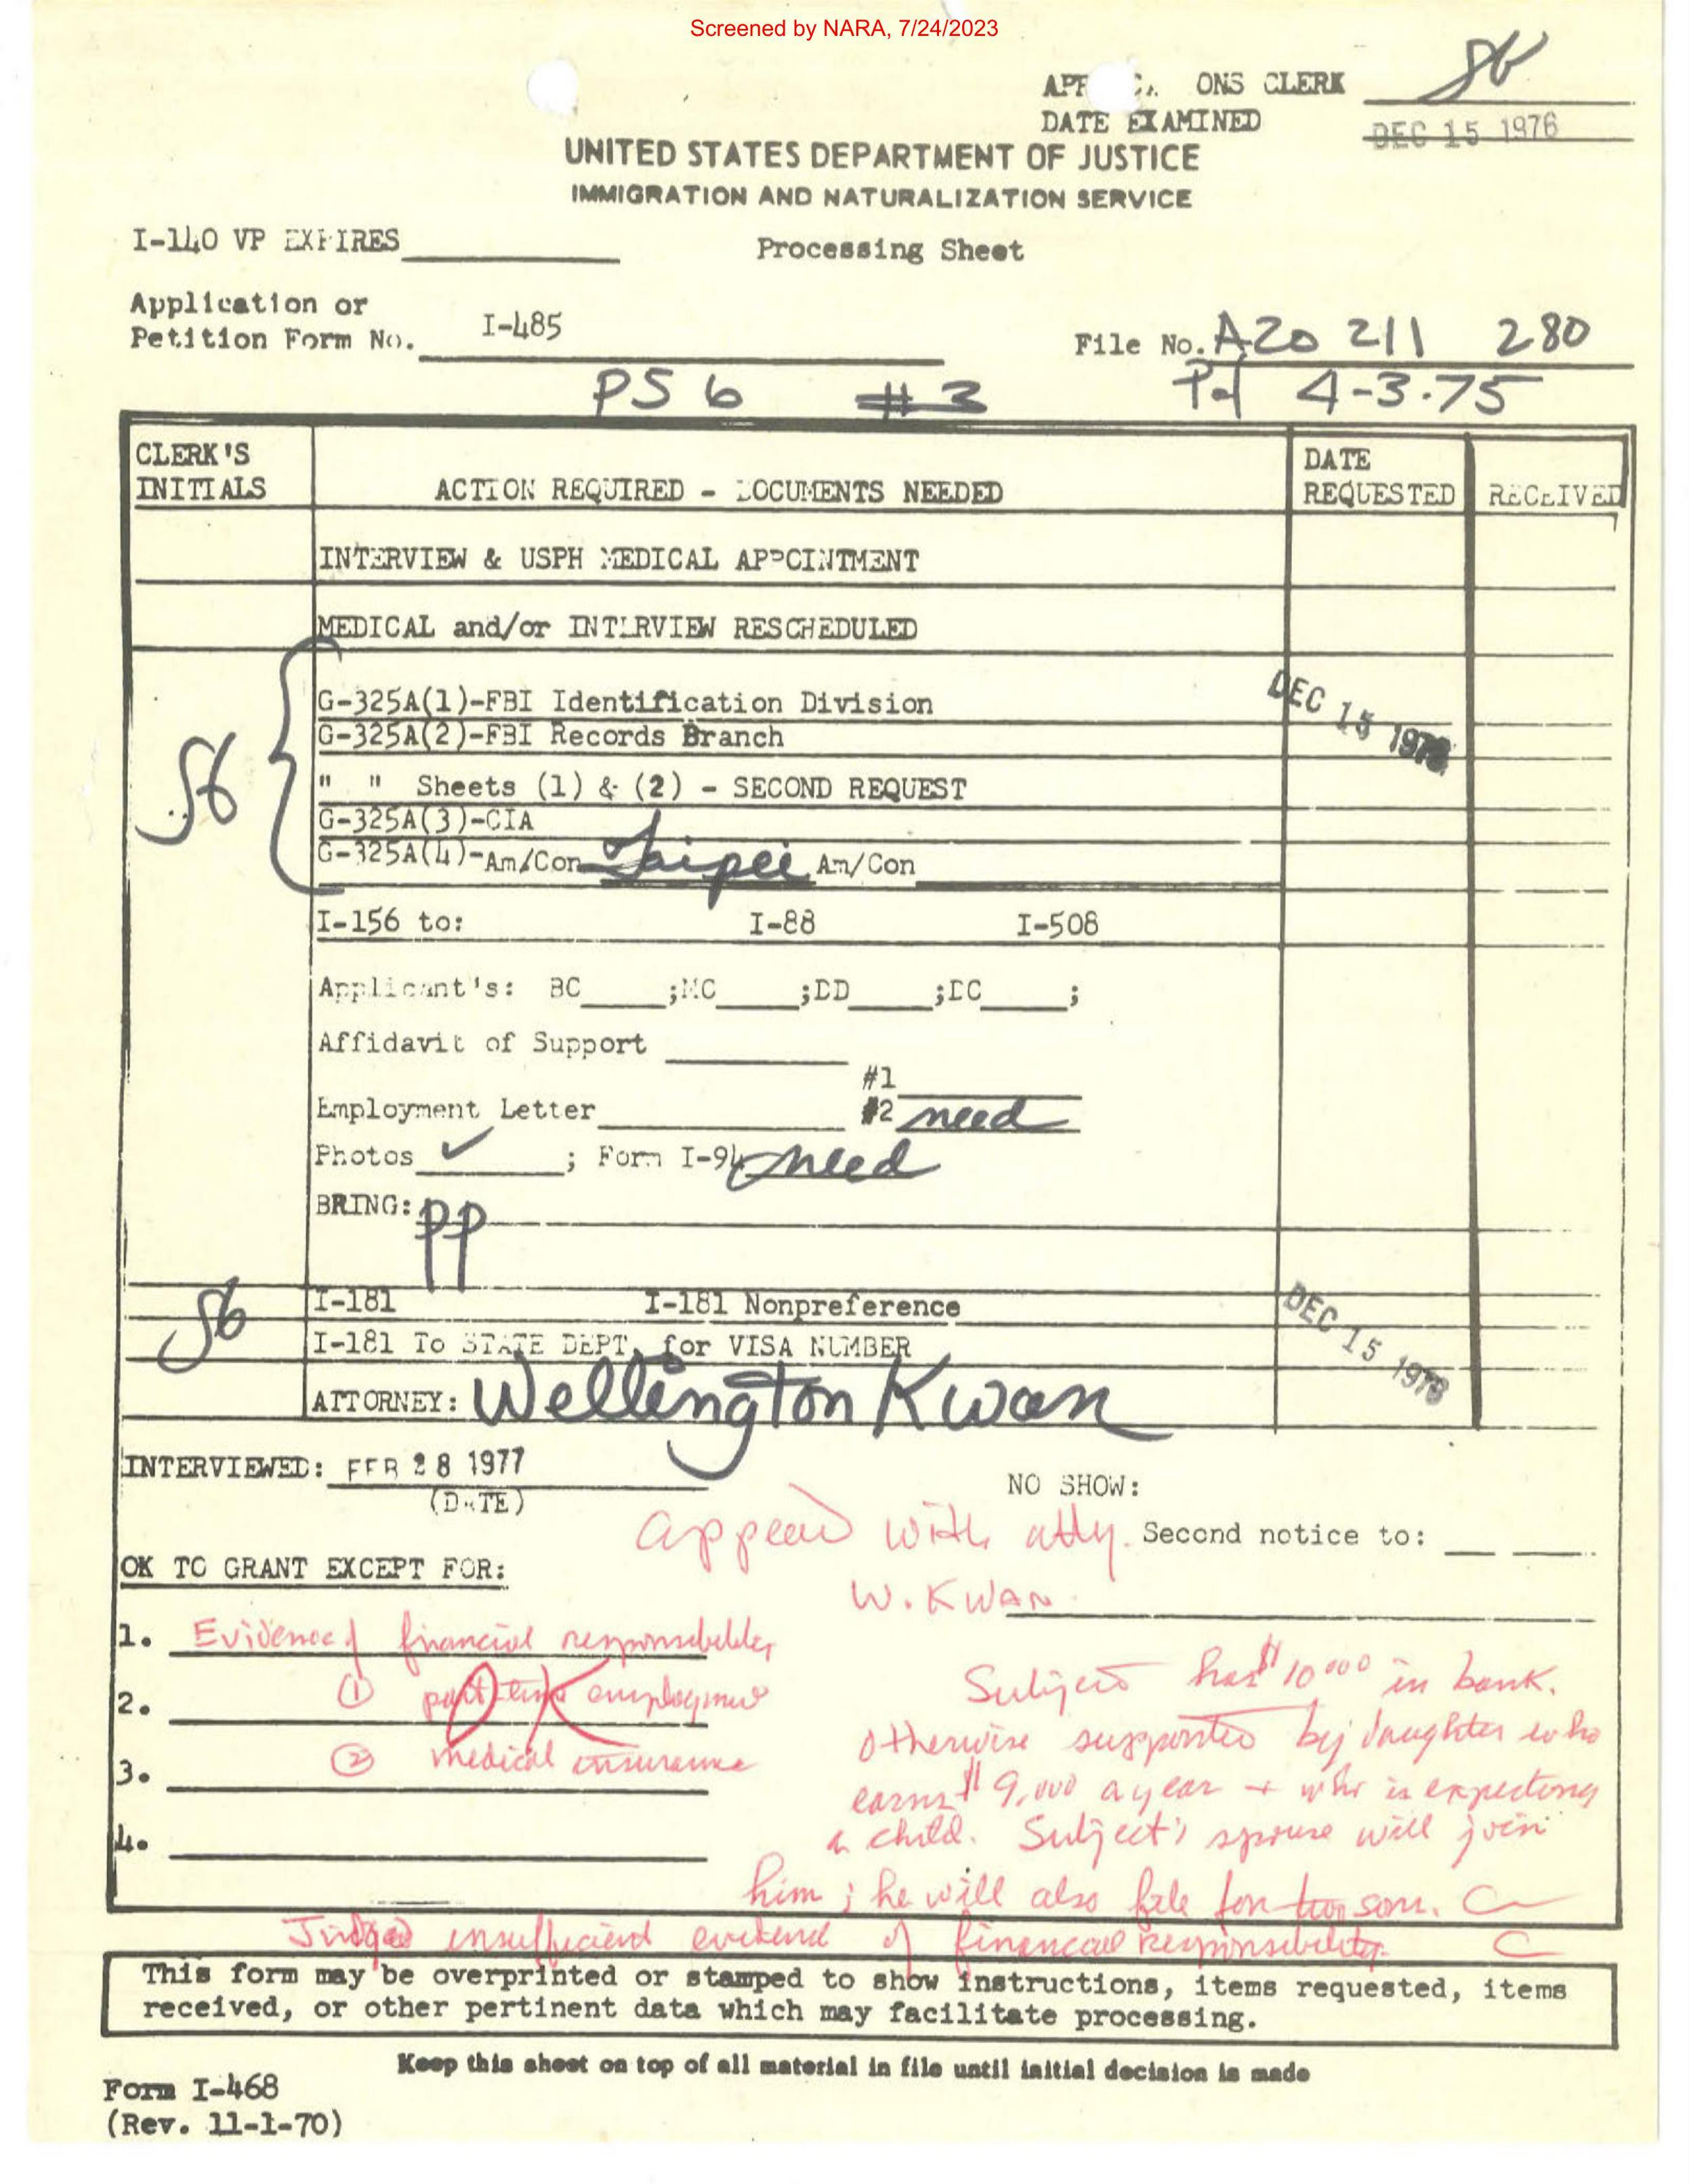 Screened by NARA, 7/24/2023
ONS CLERK
DATE EXAMINED DEC 15 1976
UNITED STATES DEPARTMENT OF JUSTICE
IMMIGRATION AND NATURALIZATION SERVICE
I-140 VP EXPIRES
Processing Sheet
Application or
Petition Form No. I-485
File No. A20 211 280
PS 6 #3 Pd 4-3-75
CLERK'S INITIALS
ACTION REQUIRED - DOCUMENTS NEEDED
DATE REQUESTED
RECEIVED
INTERVIEW & USPH MEDICAL APPOINTMENT
MEDICAL and/or INTERVIEW RESCHEDULED
G-325A(1)-FBI Identification Division
DEC 15 1976
G-325A(2)-FBI Records Branch
" " Sheets (1) & (2) - SECOND REQUEST
G-325A(3)-CIA
G-325A(4)-Am/Con Taipei Am/Con
I-156 to: I-88 I-508
Applicant's: BC ;MC ;DD ;DC ;
Affidavit of Support
#1
Employment Letter #2 need
Photos ✓ ; Form I-94 need
BRING: PP
I-181 I-181 Nonpreference
DEC 15 1976
I-181 To STATE DEPT. for VISA NUMBER
ATTORNEY: Wellington Kwan
INTERVIEWED: FEB 28 1977
(DATE)
NO SHOW:
appead with atty.
Second notice to:
W. KWAN
OK TO GRANT EXCEPT FOR:
1. Evidence of financial responsibility
2. ① part time employment
OK
3. ② medical insurance
4.
Subject has $10000 in bank.
otherwise supported by daughter who
earns $9,000 a year + who is expecting
a child. Subject's spouse will join
him; he will also file for two sons.
Judged insufficient evidence of financial responsibility.
This form may be overprinted or stamped to show instructions, items requested, items
received, or other pertinent data which may facilitate processing.
Keep this sheet on top of all material in file until initial decision is made
Form I-468
(Rev. 11-1-70)